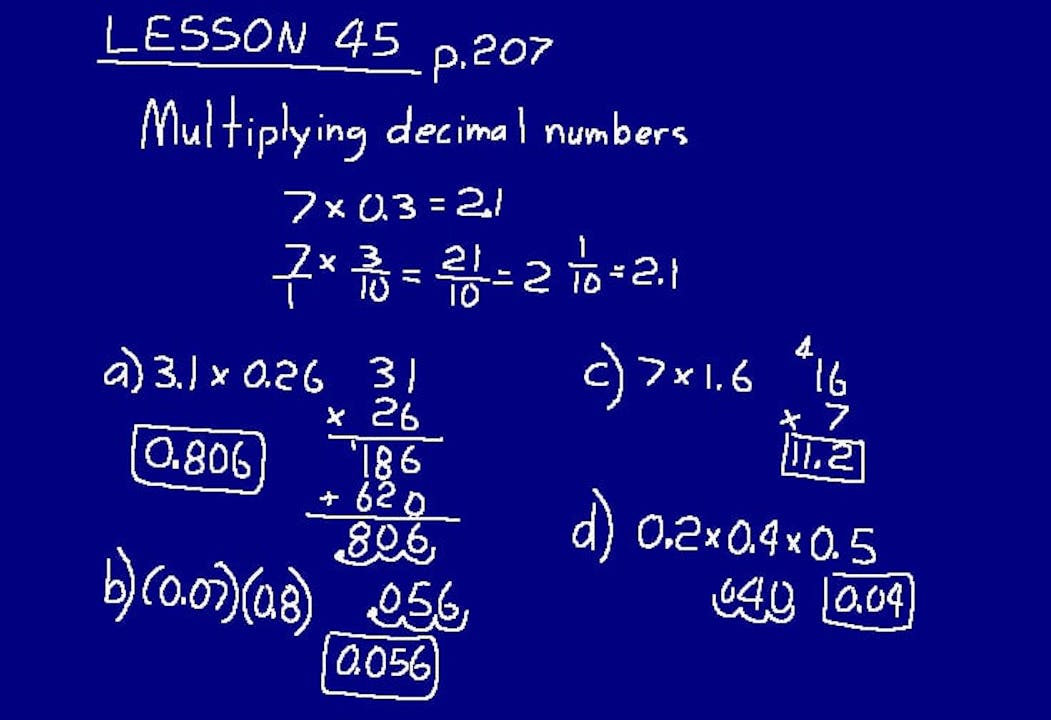 LESSON 45 p.207
Multiplying decimal numbers
7 × 0.3 = 2.1
7/1 × 3/10 = 21/10 = 2 1/10 = 2.1
a) 3.1 × 0.26
31
× 26
1186
+ 620
.806
0.806
b) (0.07)(0.8)
.056
0.056
c) 7 × 1.6
4
16
× 7
11.2
d) 0.2 × 0.4 × 0.5
040
0.04